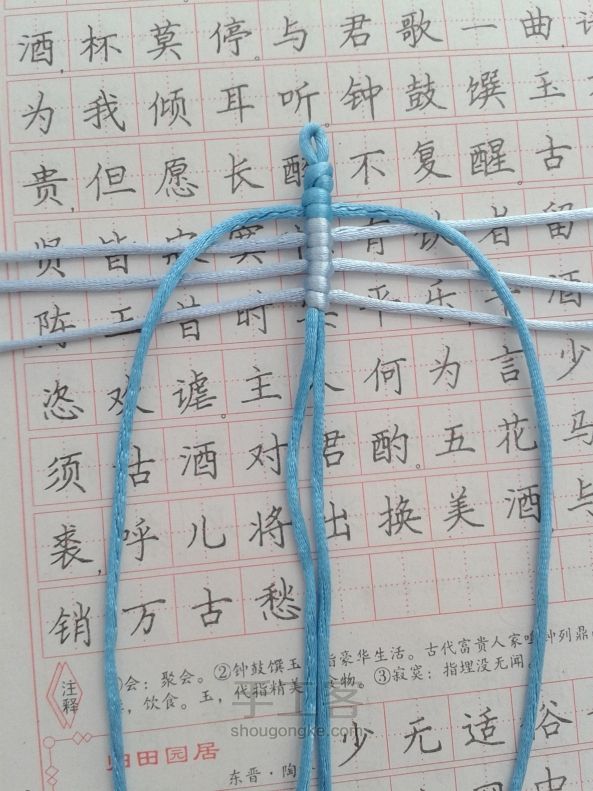 酒,杯莫停。与君歌一曲,
为我倾耳听。钟鼓馔玉
贵,但愿长醉不复醒。古
贤皆寂寞 有饮者留
陈王昔时宴平乐,斗酒
恣欢谑。主人何为言少
须沽酒对君酌。五花马
裘,呼儿将出换美酒,与
销万古愁
注释
会：聚会。②钟鼓馔玉 指豪华生活。古代富贵人家鸣钟列鼎
，饮食。玉，代指精美 物。③寂寞：指埋没无闻。
手工客
shougongke.com
少无适俗
归田园居
东晋·陶